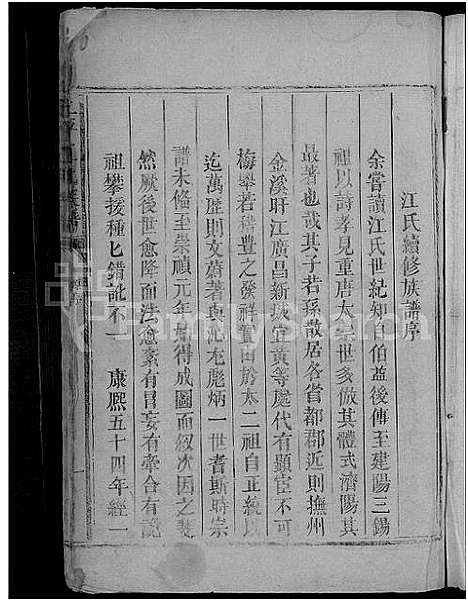 江氏續修族譜序
余嘗讀江氏世紀知自伯益後傳至建陽三錫
祖以詩孝見重唐太宗世多倣其體式濟陽其
最著也哉其子若孫散居各省都郡近則撫州
金溪盱江廣昌新城宜黃等處代有顯宦不可
梅舉若秤豐之發祥置田於太二祖自正統以
迄萬歷則文蔚著典 尤彪炳一世者斯時宗
譜未脩至崇禎元年始得成圖而叙次因之斐
然厥後世愈降而法愈紊有冒妄有牽合有詭
祖攀援種匕錯訛不一 康熙五十四年經一